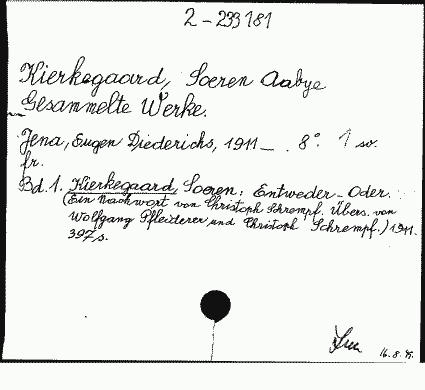 2-233181
Kierkegaard, Soeren Aabye
Gesammelte Werke.
Jena, Eugen Diederichs, 1911_ . 8°. 1 sv.
fr.
Bd. 1. Kierkegaard, Soeren: Entweder-Oder.
(Ein Nachwort von Christoph Schrempf. Übers. von
Wolfgang Pfleiderer und Christoph Schrempf.) 1911.
397s.
16.8.